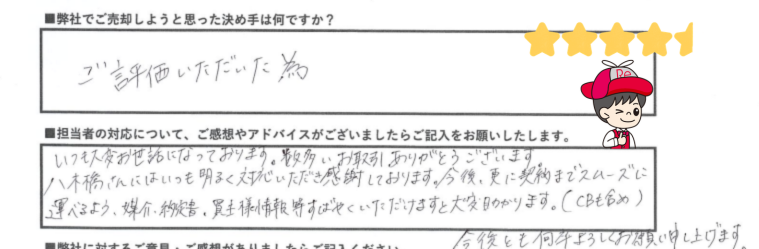 ■弊社でご売却しようと思った決め手は何ですか？
ご評価いただいた為
Re
■担当者の対応について、ご感想やアドバイスがございましたらご記入をお願いしたします。
いつも大変お世話になっております。数多いお取引ありがとうございます
八木橋さんにはいつも明るく対応いただき感謝しております。今後、更に契約までスムーズに
運べるよう、媒介・約定書、買主様情報等すばやくいただけますと大変助かります。（CBも含め）
今後とも何卒よろしくお願い申し上げます。
■弊社に対するご意見・ご感想がありましたらご記入ください